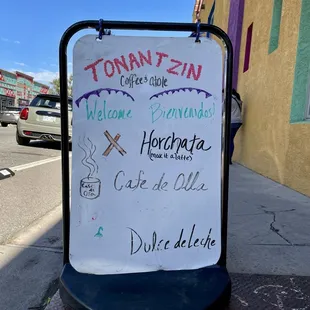 TONANTZIN
Coffees & atole
Welcome Bienvenidos!
Horchata
(make it a latte)
Cafe de Olla
Cafe de Olla
Dulce de leche